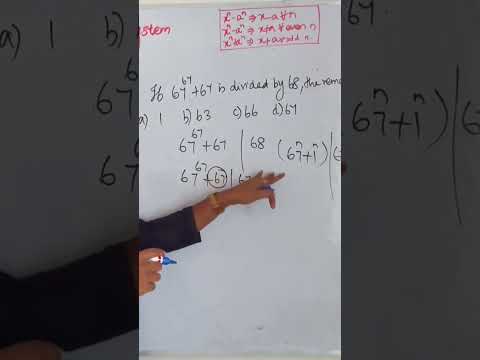 stem
xⁿ-aⁿ ⇒ x-a ∀ n
xⁿ-aⁿ ⇒ x+a ∀ even n
xⁿ+aⁿ ⇒ x+a ∀ odd n
If 67^67 + 67 is divided by 68, the rema
a) 1 b) 63 c) 66 d) 67
67^67 + 67 | 68 (67ⁿ+1ⁿ)
67^67 + 67 | 67